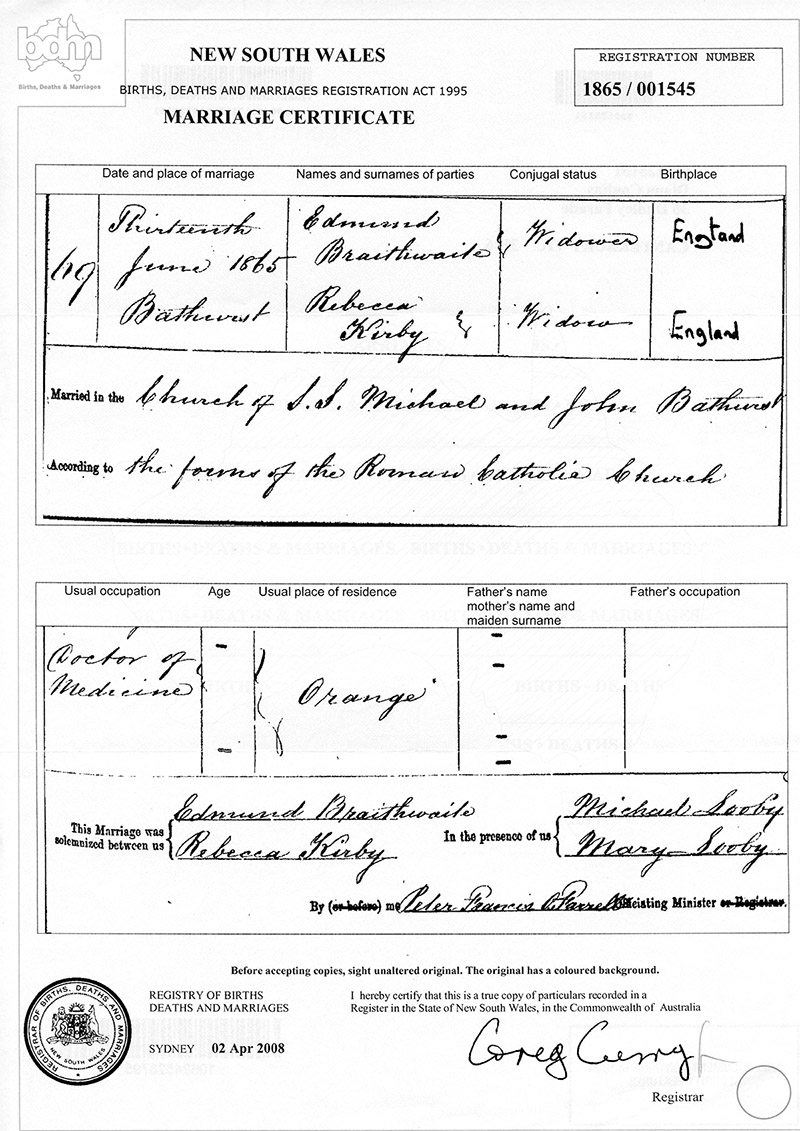 bdm
Births, Deaths & Marriages
NEW SOUTH WALES
BIRTHS, DEATHS AND MARRIAGES REGISTRATION ACT 1995
MARRIAGE CERTIFICATE
REGISTRATION NUMBER
1865 / 001545
Date and place of marriage Names and surnames of parties Conjugal status Birthplace
Thirteenth
June 1865
Bathurst
Edmund
Braithwaite
Rebecca
Kirby
Widower
Widow
England
England
Married in the Church of S.S. Michael and John Bathurst
According to the forms of the Roman Catholic Church
Usual occupation Age Usual place of residence Father's name
mother's name and
maiden surname
Father's occupation
Doctor of
Medicine
-
-
Orange
-
-
-
-
This Marriage was
solemnized between us
Edmund Braithwaite
Rebecca Kirby
In the presence of us
Michael Looby
Mary Looby
By (or before) me Peter Francis O'Farrell Officiating Minister or Registrar.
Before accepting copies, sight unaltered original. The original has a coloured background.
REGISTRAR OF BIRTHS, DEATHS AND MARRIAGES
NEW SOUTH WALES
REGISTRY OF BIRTHS
DEATHS AND MARRIAGES
SYDNEY 02 Apr 2008
I hereby certify that this is a true copy of particulars recorded in a
Register in the State of New South Wales, in the Commonwealth of Australia
Greg Curry
Registrar